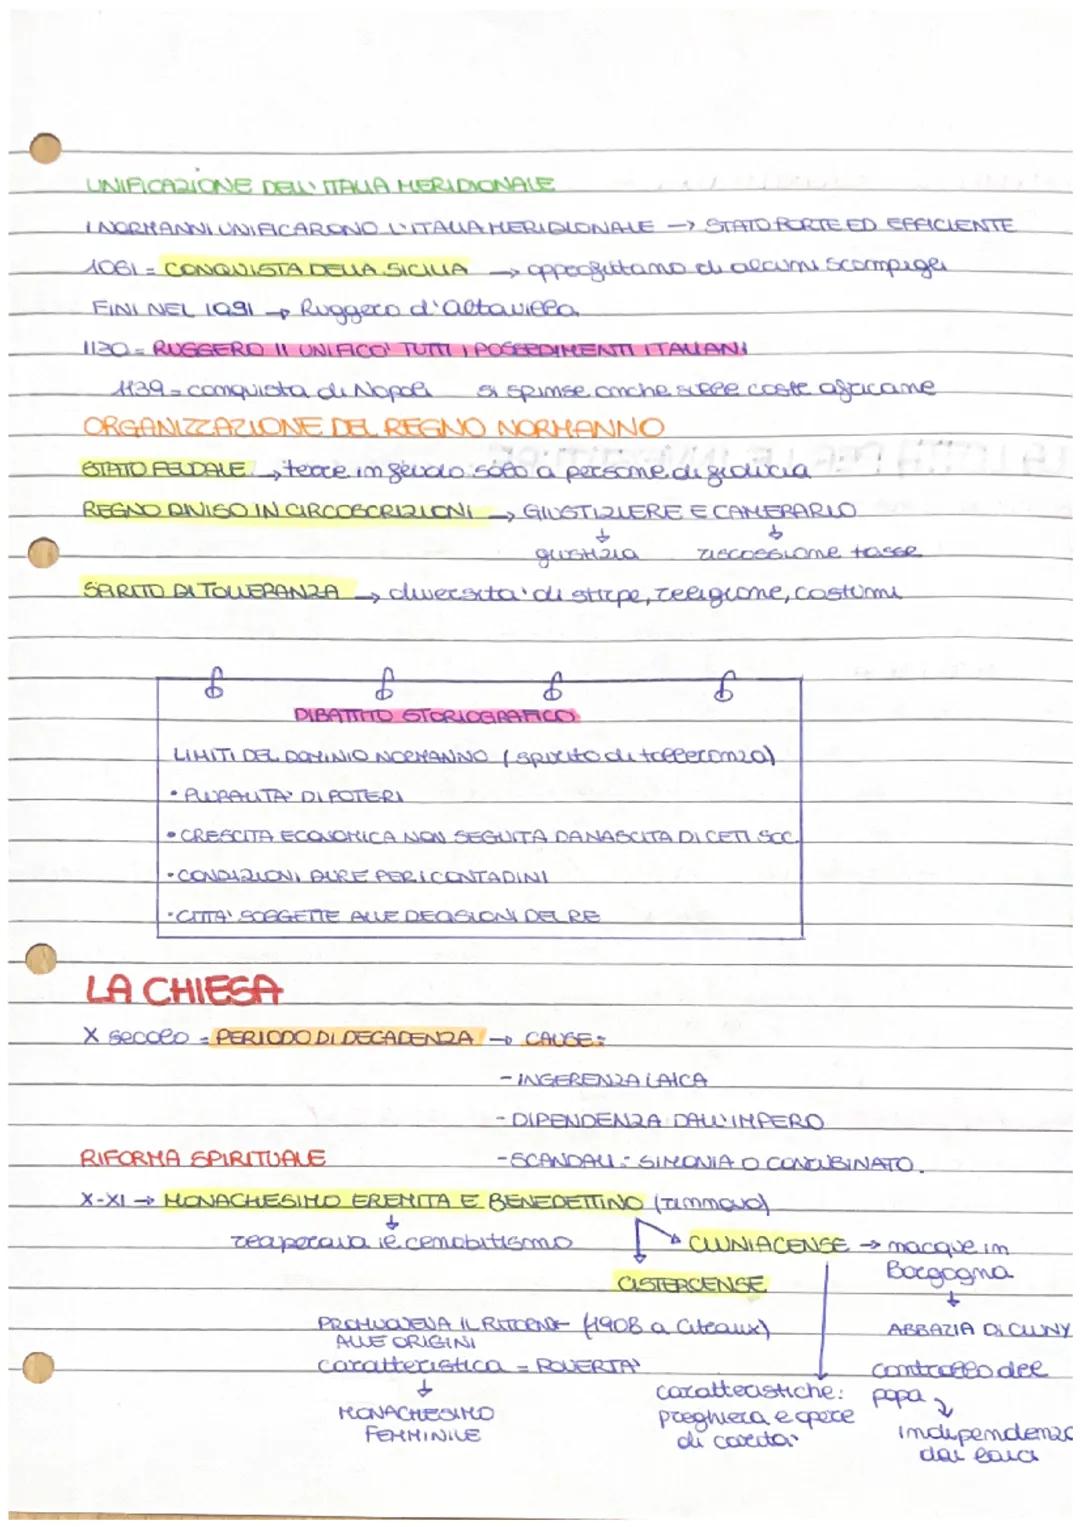 UNIFICAZIONE DELL'ITALIA MERIDIONALE
I NORMANNI UNIFICARONO L'ITALIA MERIDIONALE → STATO FORTE ED EFFICIENTE
1061 = CONQUISTA DELLA SICILIA → approfittano di alcuni scompigli
FINI NEL 1091 → Ruggero d'Altavilla
1130 = RUGGERO II UNIFICO' TUTTI I POSSEDIMENTI ITALIANI
1139 = conquista di Napoli si spinse anche sulle coste africane
ORGANIZZAZIONE DEL REGNO NORMANNO
STATO FEUDALE → terre in feudo solo a persone di fiducia
REGNO DIVISO IN CIRCOSCRIZIONI → GIUSTIZIERE E CAMERARIO
↓ ↓
giustizia riscossione tasse
SPIRITO DI TOLLERANZA → diversita' di stirpe, religione, costumi
DIBATTITO STORIOGRAFICO
LIMITI DEL DOMINIO NORMANNO (spirito di tolleranza)
• PLURALITA' DI POTERI
• CRESCITA ECONOMICA NON SEGUITA DA NASCITA DI CETI SOC.
• CONDIZIONI DURE PER I CONTADINI
• CITTA' SOGGETTE ALLE DECISIONI DEL RE
LA CHIESA
X secolo = PERIODO DI DECADENZA → CAUSE:
- INGERENZA LAICA
- DIPENDENZA DALL'IMPERO
- SCANDALI: SIMONIA O CONCUBINATO.
RIFORMA SPIRITUALE
X-XI → MONACHESIMO EREMITA E BENEDETTINO (rinnovo)
↓
recuperava il cenobitismo
CLUNIACENSE → nacque in
Borgogna
↓
CISTERCENSE
ABBAZIA DI CLUNY
PROMUOVEVA IL RITORNO (1908 a Citeaux)
ALLE ORIGINI
caratteristica = POVERTA'
↓
MONACHESIMO
FEMMINILE
caratteristiche:
preghiera e opere
di carita'
controllo del
papa
↓
indipendenza
dai laici